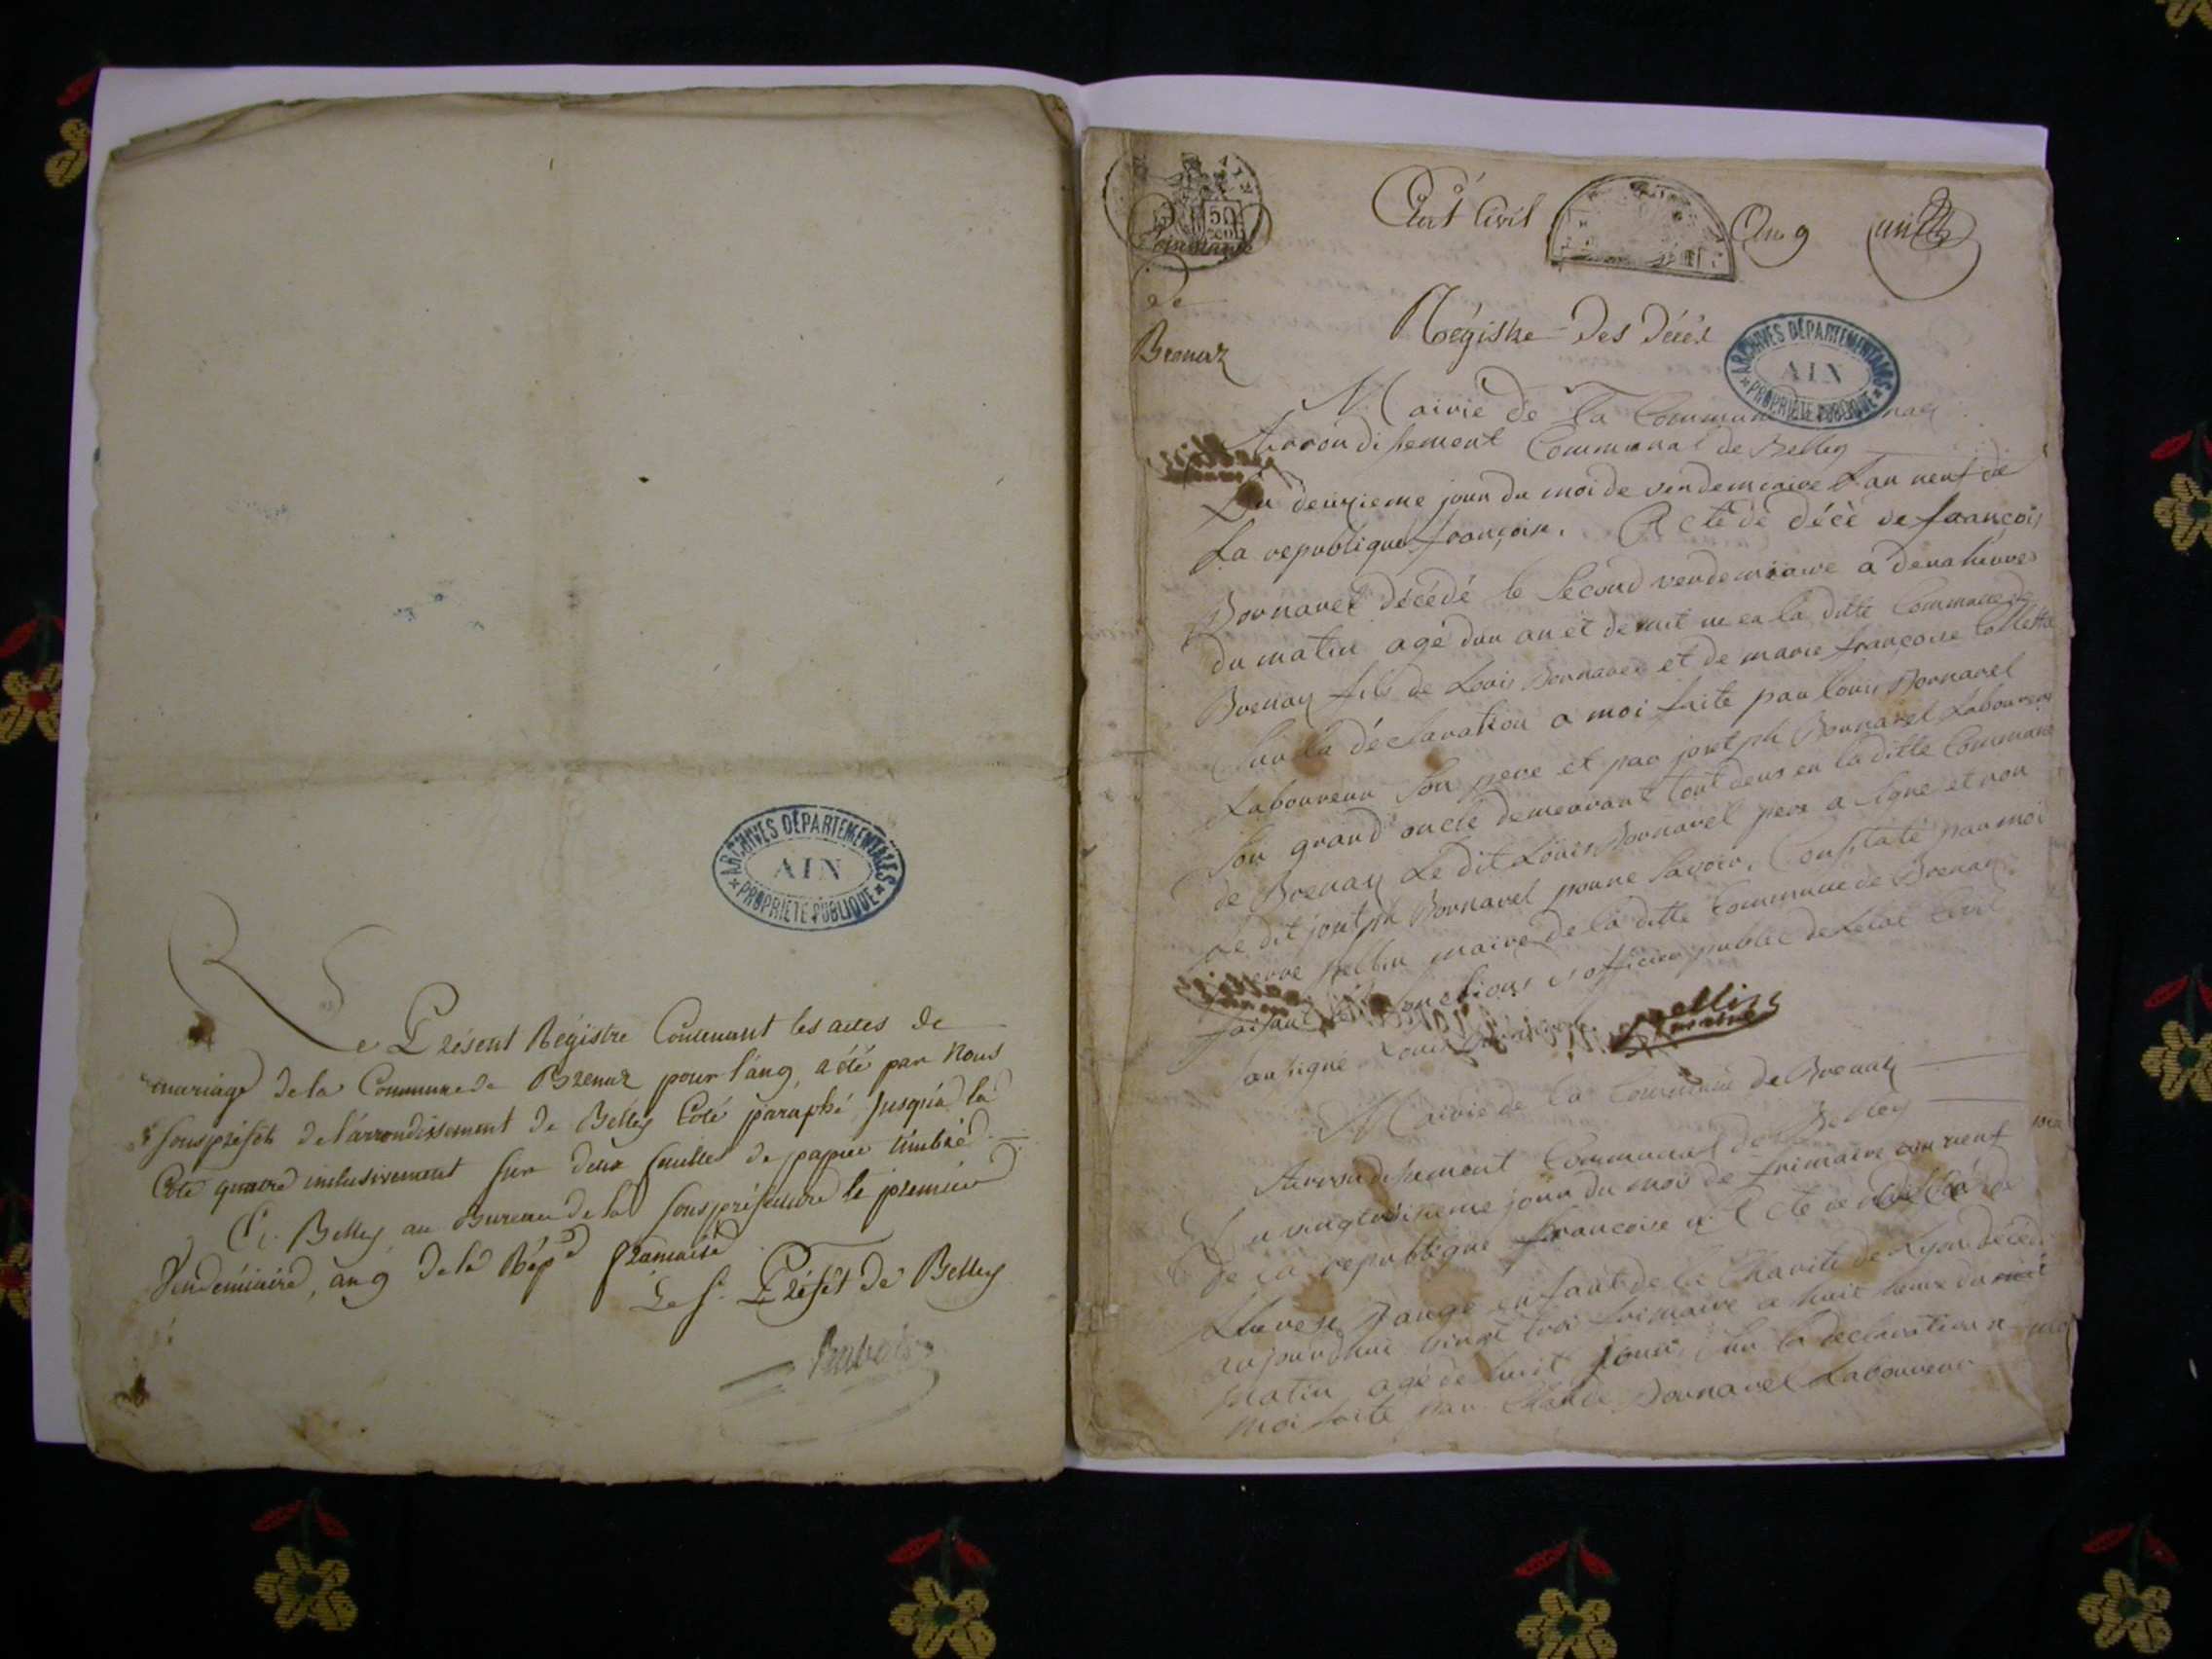 ARCHIVES DÉPARTEMENTALES
AIN
* PROPRIÉTÉ PUBLIQUE *
Le Présent Régistre Contenant les actes de
mariage de la Commune de Brenaz pour l'an 9, a été par Nous
souspréfet de l'arrondissement de Belley Coté paraphé jusqu'à la
Cote quatre inclusivement sur deux feuilles de papier timbré.
A Belley au Bureau de la souspréfecture le premier
Vendemiaire, an 9 de la Rép. française
Le S. Préfet de Belley
50
Commune
de
Brenaz
État Civil
An 9
un
Régistre des décès
ARCHIVES DÉPARTEMENTALES
AIN
* PROPRIÉTÉ PUBLIQUE *
Mairie de La Commune
Arrondissement Communal de Belley
Du deuxieme jour du moi de vendemiaire L'an neuf de
La republique françoise. Acte de décè de françois
Bornarel décédé le second vendemiaire a deux heures
du matin agé d'un an et demit né en la ditte Commune de
Brenaz fils de Louis Bornarel et de marie françoise
Sur la déclaration a moi faite par louis Bornarel
Laboureur son pere et par joseph Bornarel Laboureur
son grand oncle demeurant tout deux en la ditte Commune
de Brenaz Le dit Louis Bornarel pere a signe et non
le dit joseph Bornarel pour ne savoir. Constaté par moi
pierre pellin maire de la ditte Commune de Brenaz
faisant les fonctions d'officier public de Letat Civil
soussigné Louis Bornarel pellin
maire
Mairie de la Commune de Brenaz
Arrondissement Communal de Belley
Du vingtroisieme jour du mois de frimaire an neuf
de la republique francoise Acte de décé de
enfant de la Charité de Lyon décédé
aujourdhui vingt troi frimaire a huit heure du
matin agé de huit jours, sur la declaration a
moi faite par Claude Bornarel Laboureur